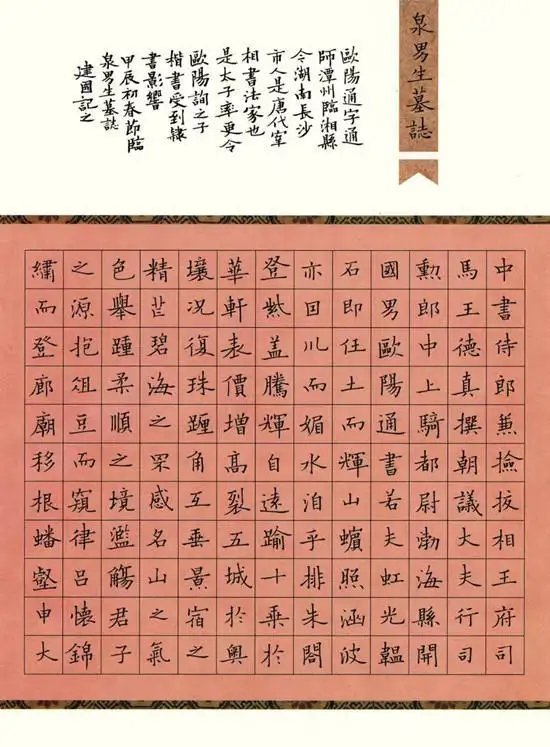 泉男生墓誌
歐陽通字通
師潭州臨湘縣
令湖南長沙
市人是唐代宰
相書法家也
是太子率更令
歐陽詢之子
楷書受到隸
書影響
甲辰初春節臨
泉男生墓誌
建國記之
中書侍郎兼撿挍相王府司
馬王德真撰朝議大夫行司
勳郎中上騎都尉渤海縣開
國男歐陽通書若夫虹光韞
石即任土而輝山蠙照涵波
亦因川而媚水洎乎排朱閤
登紫蓋騰輝自遠踰十乗於
華軒表價增高裂五城於奧
壤況復珠躔角互垂景宿之
精芒碧海之罙感名山之氣
色舉踵柔順之境濫觴君子
之源抱俎豆而窺律呂懷錦
繡而登廊廟移根蟠壑申大